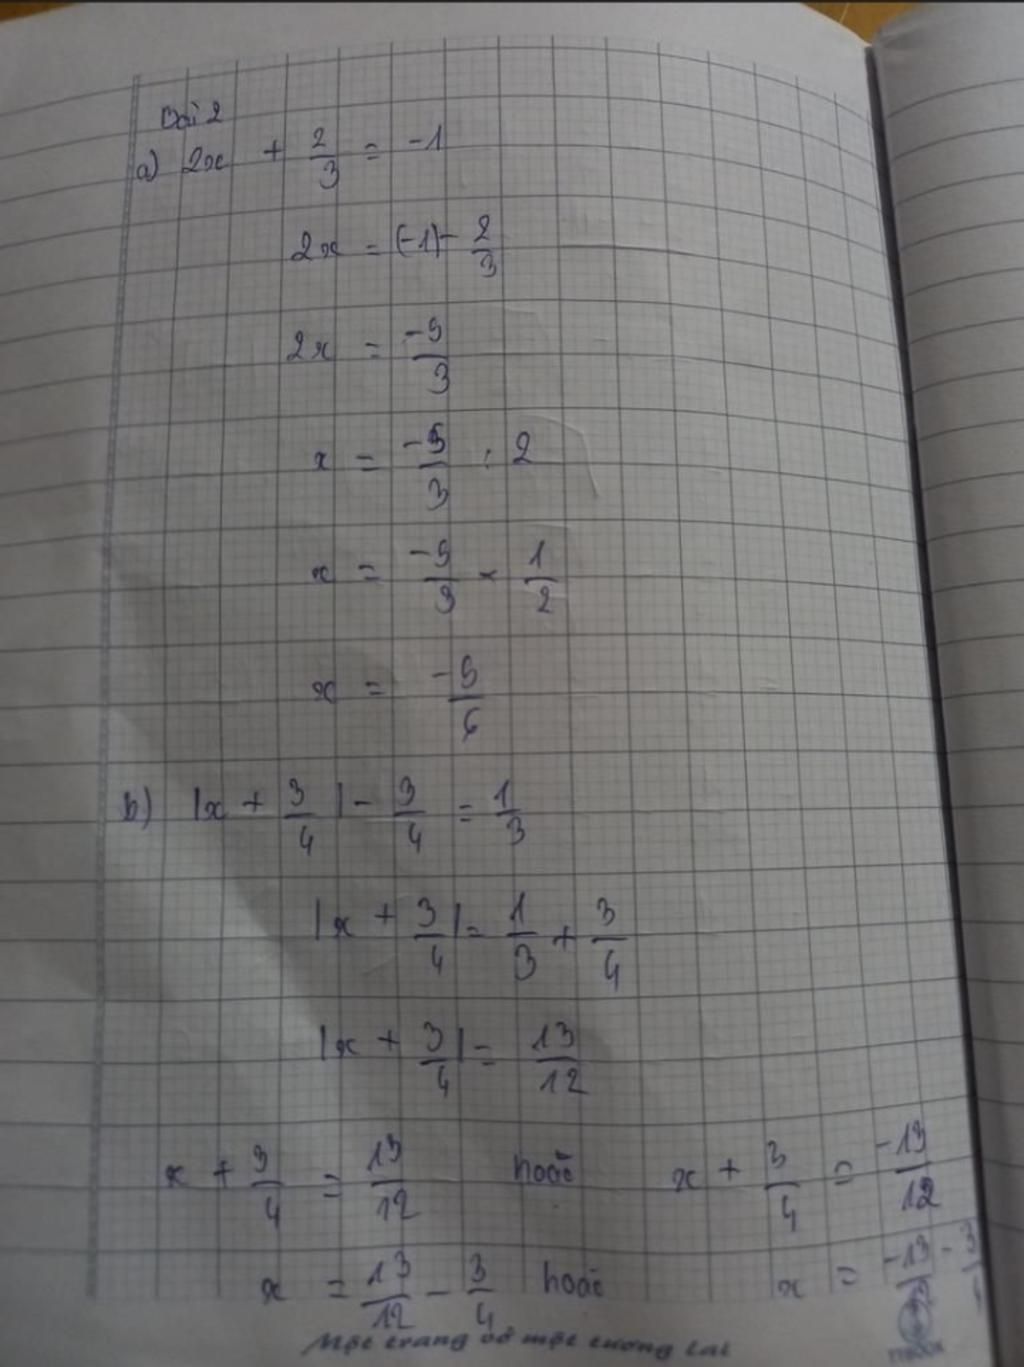 Bài 2
a) 2x + 2/3 = -1
2x = (-1) - 2/3
2x = -5/3
x = -5/3 : 2
x = -5/3 × 1/2
x = -5/6
b) |x + 3/4| - 3/4 = 1/3
|x + 3/4| = 1/3 + 3/4
|x + 3/4| = 13/12
x + 3/4 = 13/12 hoặc x + 3/4 = -13/12
x = 13/12 - 3/4 hoặc x = -13/12 - 3/
Một trang vở một tương lai